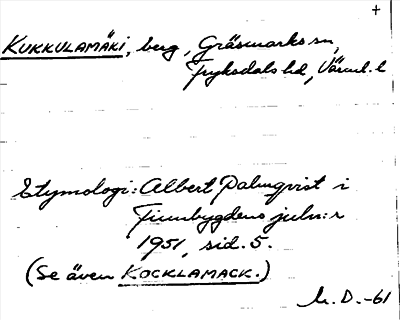 +
KUKKULAMÄKI, berg, Gräsmarks sn,
Fryksdals hd, Värml. l
Etymologi: Albert Palmqvist i
Finnbygdens juln:r
1951, sid. 5.
(Se även KOCKLAMACK.)
M. D. -61